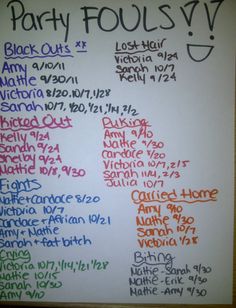 Party FOULS!!
Black Outs **
Amy 9/10/11
Mattie 9/30/11
Victoria 8/20, 10/7, 1/28
Sarah 10/7, 1/20, 1/21, 1/14, 2/2
Lost Hair
Victoria 9/24
Sarah 10/7
Kelly 9/24
Kicked Out
Kelly 9/24
Sarah 9/24
Shelby 9/24
Mattie 10/8, 9/30
Puking
Amy 9/10
Mattie 9/30
Candace 8/20
Victoria 10/7, 2/5
Sarah 11/4, 2/3
Julia 10/7
Fights
Mattie + Candace 8/20
Victoria 10/7
Candace + African 10/21
Amy + Mattie
Sarah + fat bitch
Carried Home
Amy 9/10
Mattie 9/30
Sarah 10/7
Victoria 1/28
Crying
Victoria 10/7, 1/14, 1/21, 1/28
Mattie 10/15
Sarah 9/30
Amy 9/10
Biting
Mattie - Sarah 9/30
Mattie - Erik 9/30
Mattie - Amy 9/30